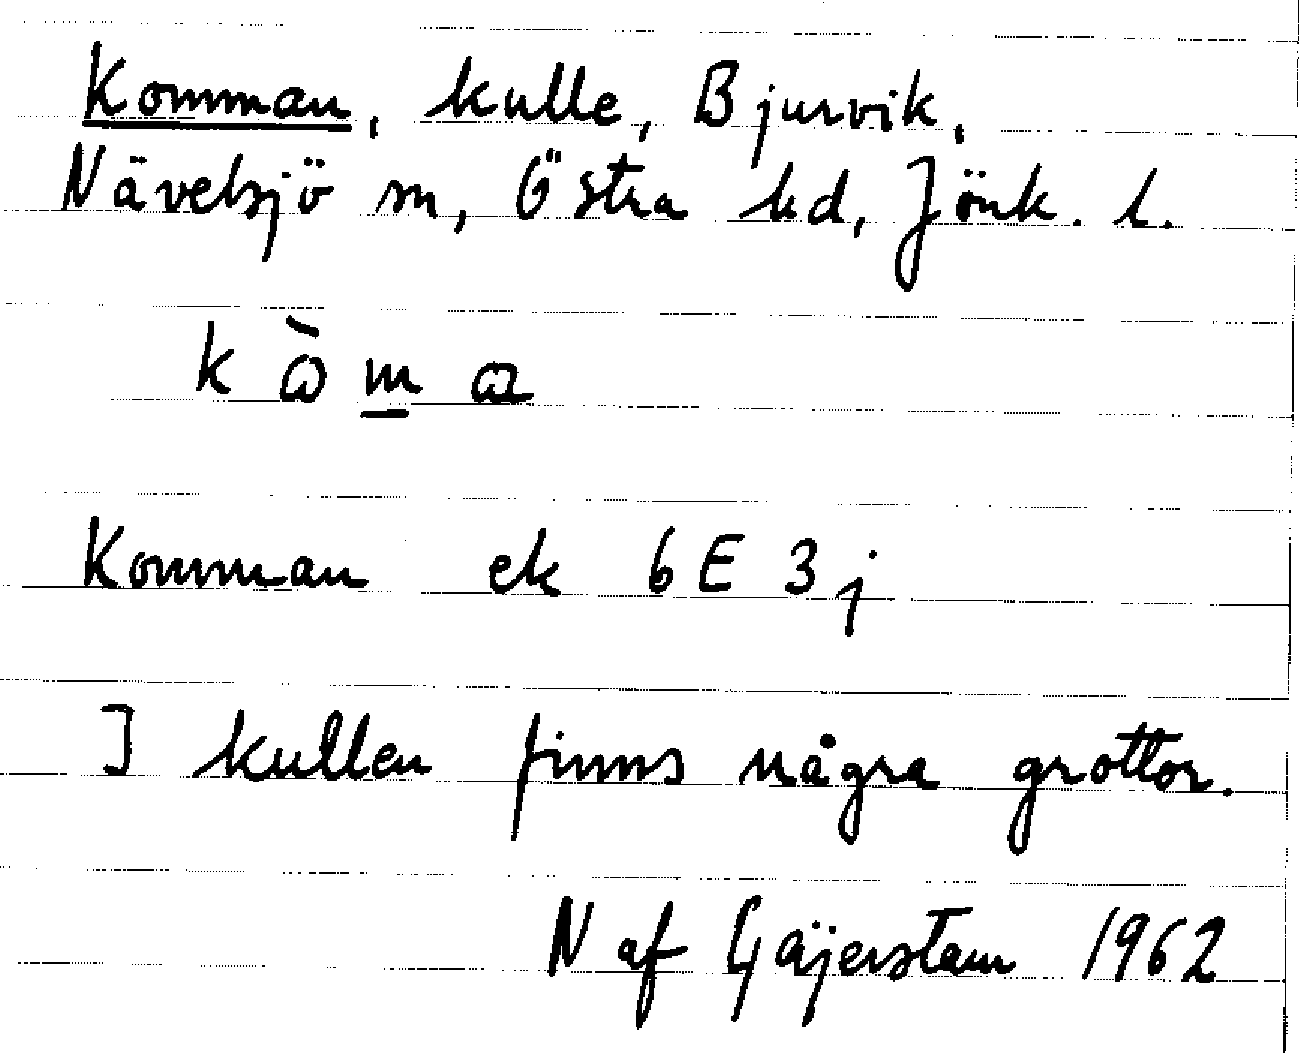 Komman, kulle, Bjurvik,
Nävelsjö sn, Östra hd, Jönk. l.
k ò m a
Komman ek 6E3j
I kullen finns några grottor.
N af Gäjerstam 1962